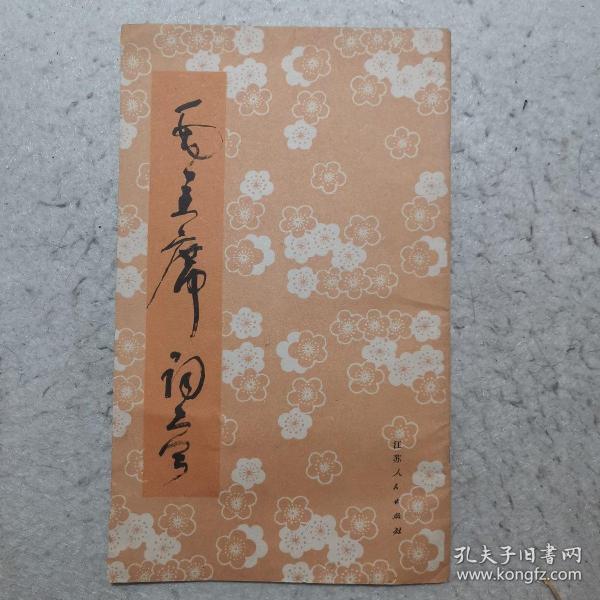 毛主席词六首
江苏人民出版社
孔夫子旧书网
www.kongfz.com